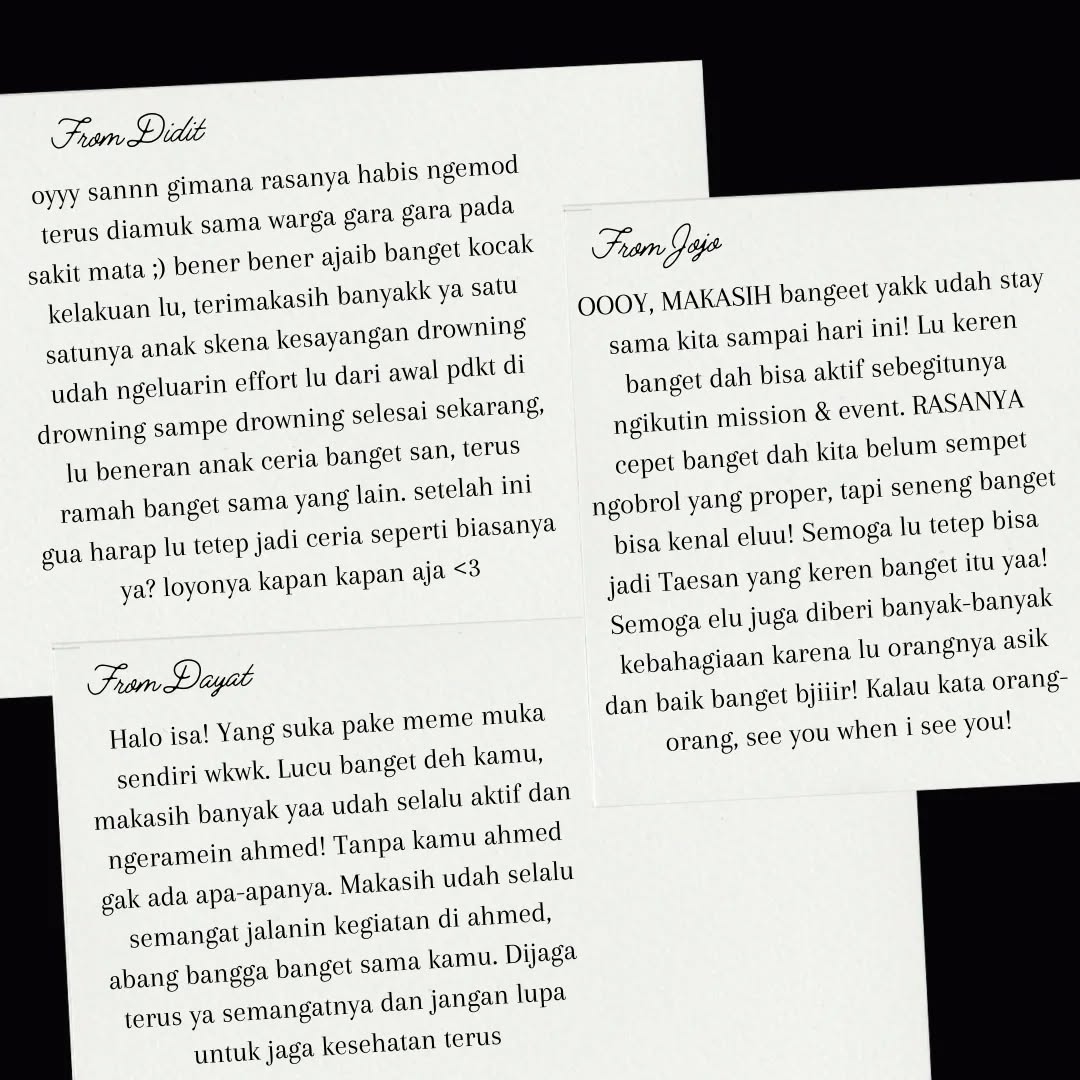 From Didit
oyyy sannn gimana rasanya habis ngemod
terus diamuk sama warga gara gara pada
sakit mata ;) bener bener ajaib banget kocak
kelakuan lu, terimakasih banyakk ya satu
satunya anak skena kesayangan drowning
udah ngeluarin effort lu dari awal pdkt di
drowning sampe drowning selesai sekarang,
lu beneran anak ceria banget san, terus
ramah banget sama yang lain. setelah ini
gua harap lu tetep jadi ceria seperti biasanya
ya? loyonya kapan kapan aja <3
From Jojo
OOOY, MAKASIH bangeet yakk udah stay
sama kita sampai hari ini! Lu keren
banget dah bisa aktif sebegitunya
ngikutin mission & event. RASANYA
cepet banget dah kita belum sempet
ngobrol yang proper, tapi seneng banget
bisa kenal eluu! Semoga lu tetep bisa
jadi Taesan yang keren banget itu yaa!
Semoga elu juga diberi banyak-banyak
kebahagiaan karena lu orangnya asik
dan baik banget bjiiir! Kalau kata orang-
orang, see you when i see you!
From Dayat
Halo isa! Yang suka pake meme muka
sendiri wkwk. Lucu banget deh kamu,
makasih banyak yaa udah selalu aktif dan
ngeramein ahmed! Tanpa kamu ahmed
gak ada apa-apanya. Makasih udah selalu
semangat jalanin kegiatan di ahmed,
abang bangga banget sama kamu. Dijaga
terus ya semangatnya dan jangan lupa
untuk jaga kesehatan terus